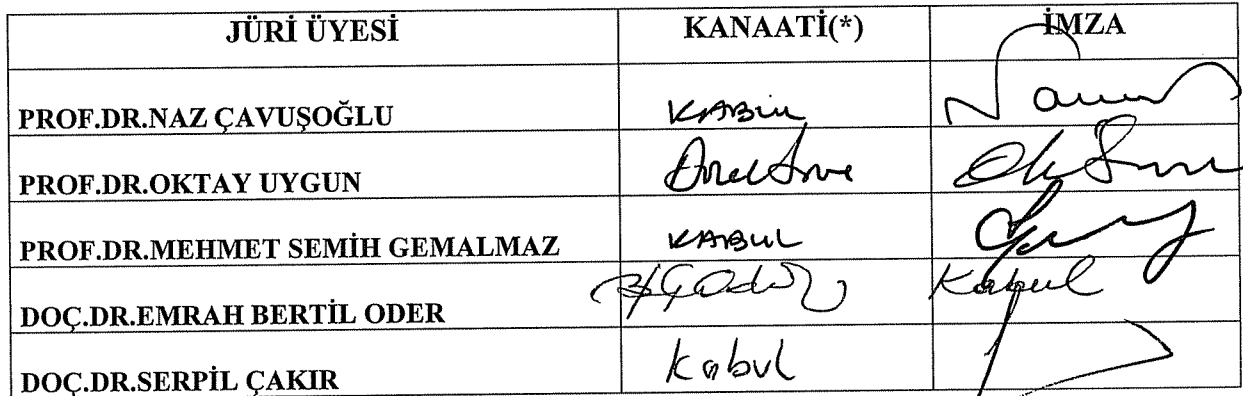 JÜRİ ÜYESİ KANAATİ(*) İMZA
PROF.DR.NAZ ÇAVUŞOĞLU KABUL
PROF.DR.OKTAY UYGUN
PROF.DR.MEHMET SEMİH GEMALMAZ KABUL
DOÇ.DR.EMRAH BERTİL ODER Kabul
DOÇ.DR.SERPİL ÇAKIR Kabul